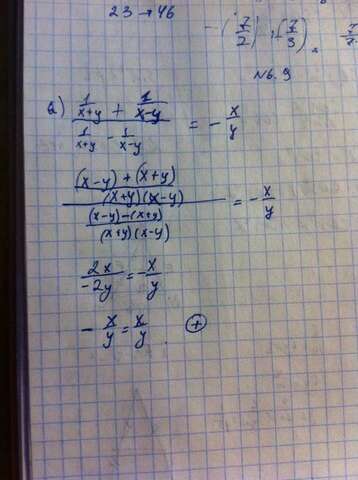 23 → 46
-(7/2) ; (7/3)
№. 9
a) (1/(x+y) + 1/(x-y)) / (1/(x+y) - 1/(x-y)) = - x/y
((x-y)+(x+y))/((x+y)(x-y)) / ((x-y)-(x+y))/((x+y)(x-y)) = - x/y
2x/-2y = - x/y
- x/y = x/y (+)